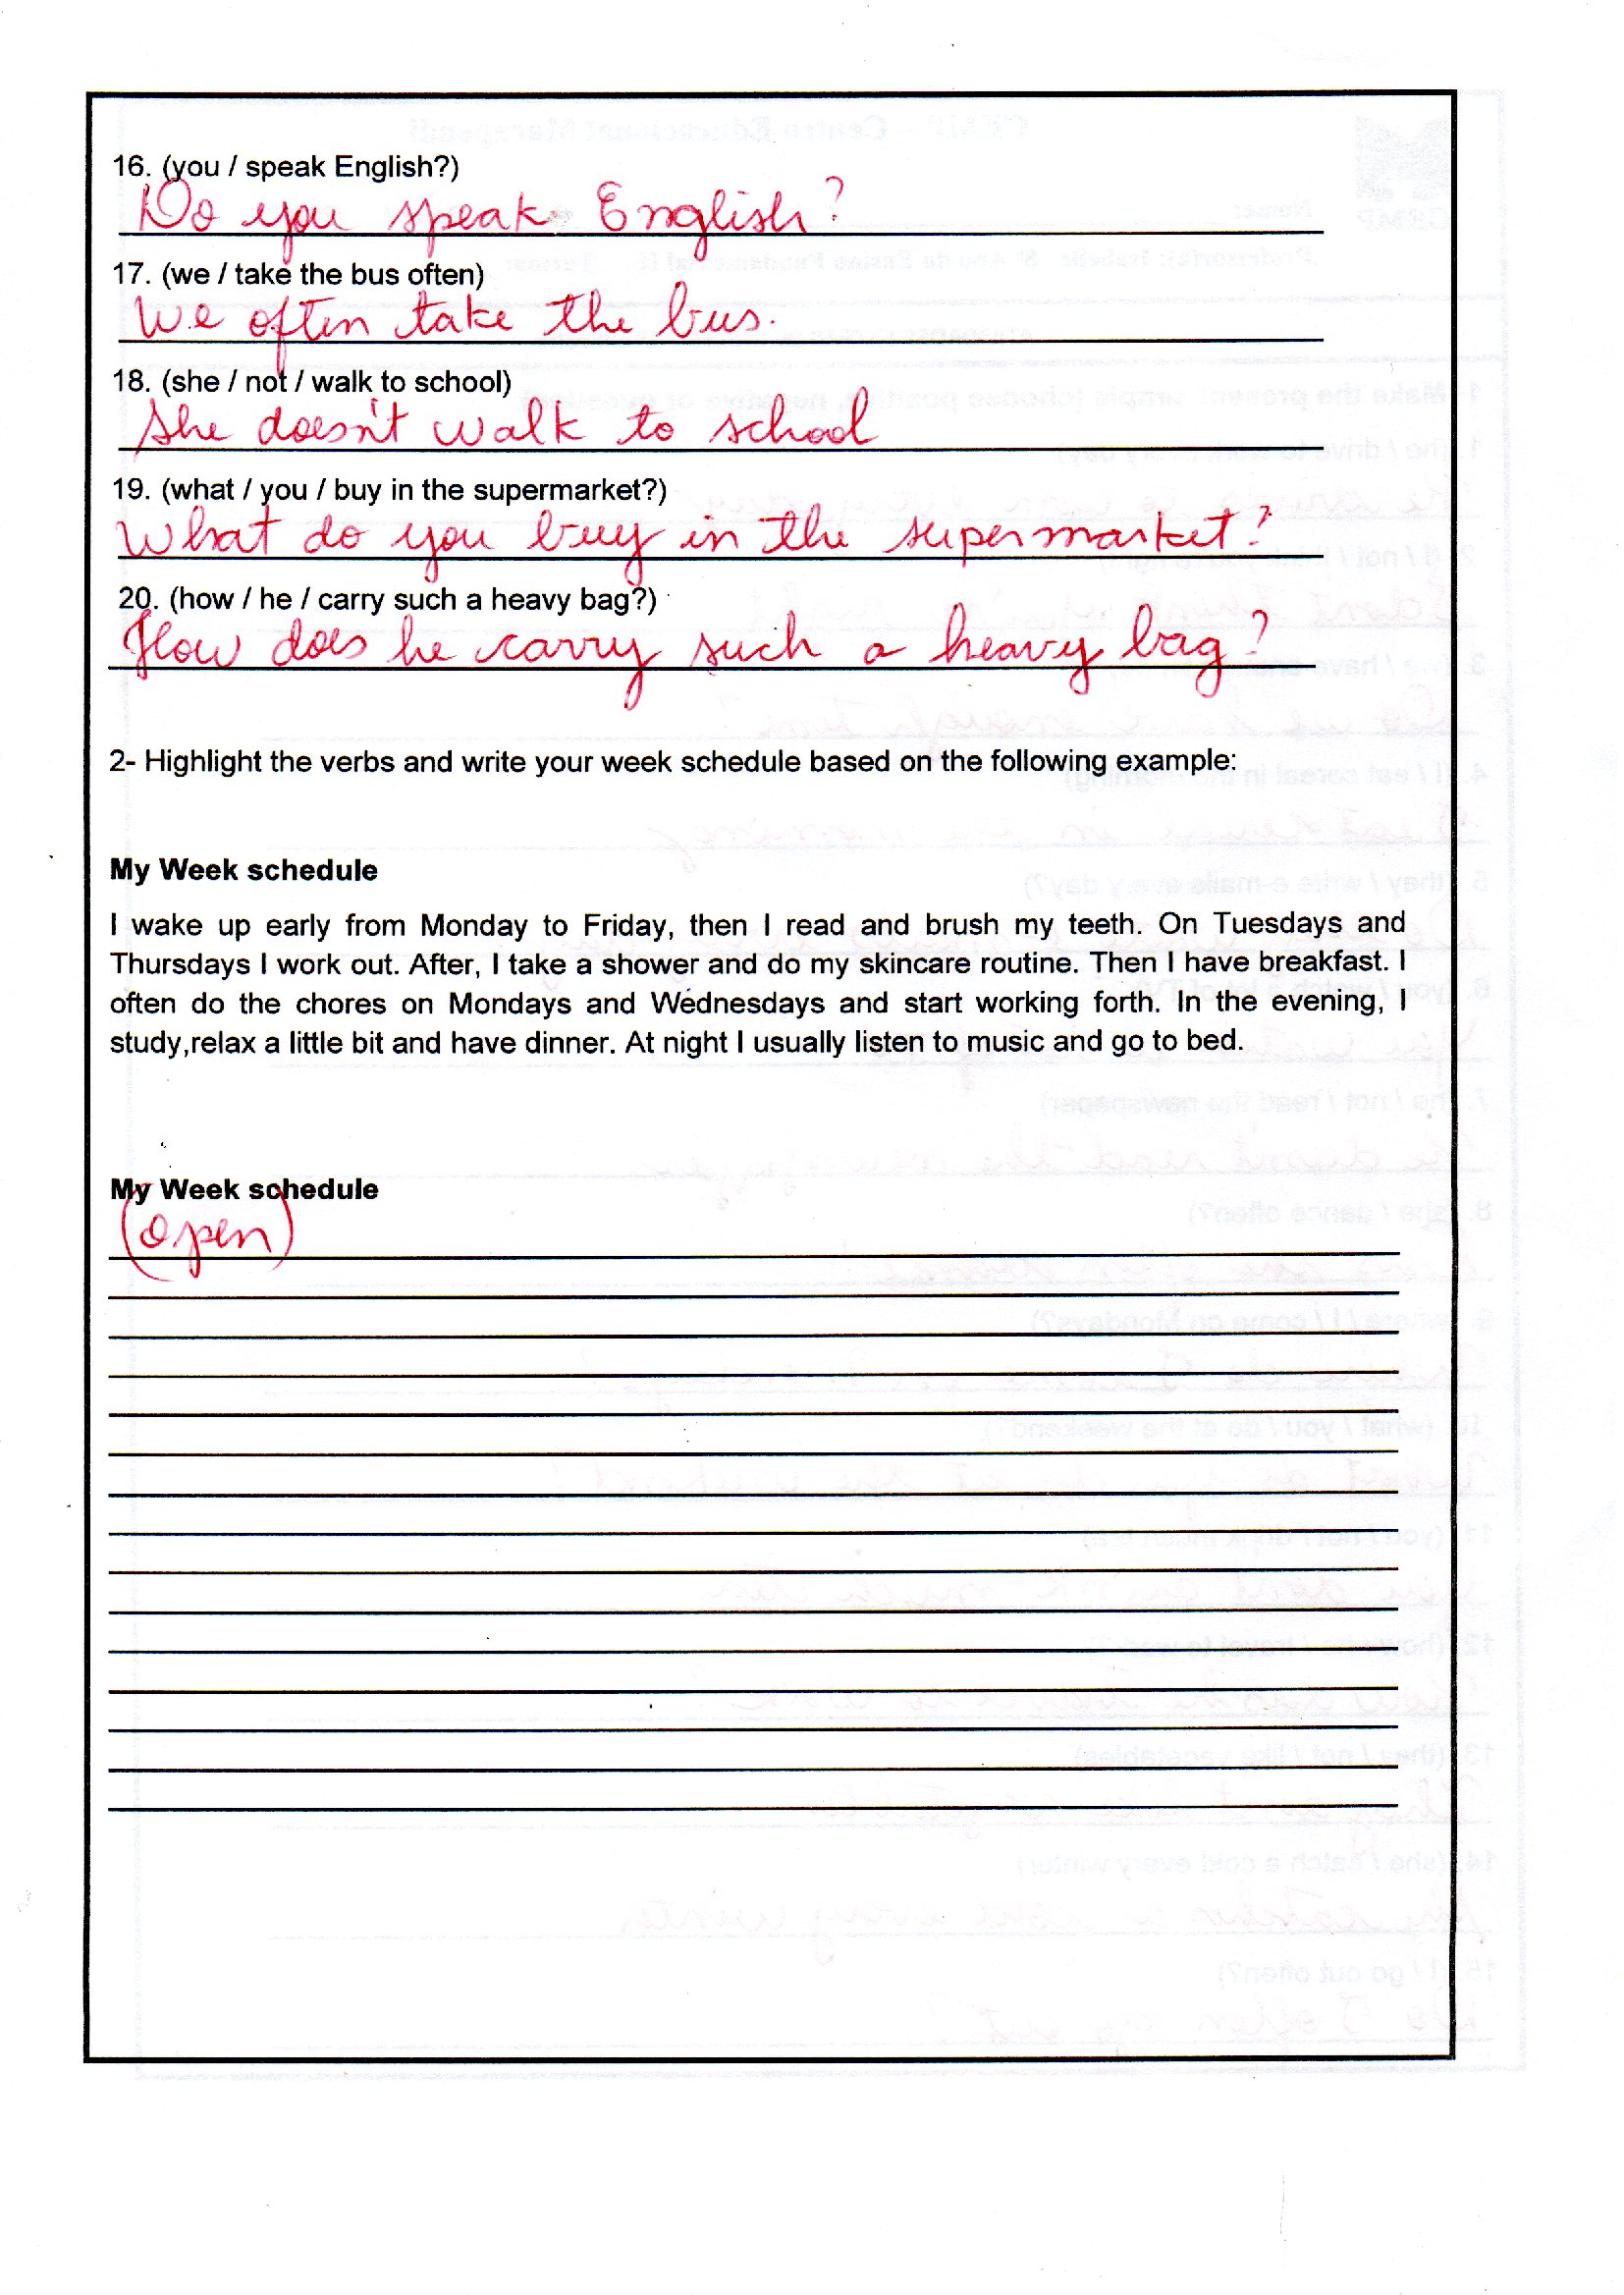 16. (you / speak English?)
Do you speak English?
17. (we / take the bus often)
We often take the bus.
18. (she / not / walk to school)
She doesn't walk to school
19. (what / you / buy in the supermarket?)
What do you buy in the supermarket?
20. (how / he / carry such a heavy bag?)
How does he carry such a heavy bag?
2- Highlight the verbs and write your week schedule based on the following example:
My Week schedule
I wake up early from Monday to Friday, then I read and brush my teeth. On Tuesdays and
Thursdays I work out. After, I take a shower and do my skincare routine. Then I have breakfast. I
often do the chores on Mondays and Wednesdays and start working forth. In the evening, I
study,relax a little bit and have dinner. At night I usually listen to music and go to bed.
My Week schedule
(open)